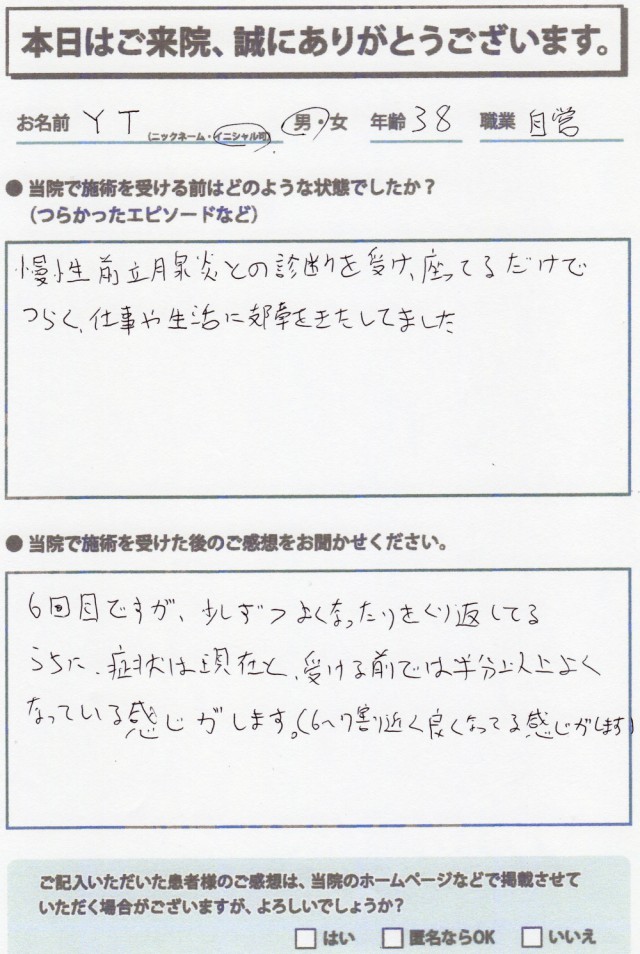 本日はご来院、誠にありがとうございます。
お名前 YT (ニックネーム・イニシャル可) 男・女 年齢 38 職業 自営
● 当院で施術を受ける前はどのような状態でしたか？
（つらかったエピソードなど）
慢性前立腺炎との診断を受け、座ってるだけで
つらく、仕事や生活に支障をきたしてました
● 当院で施術を受けた後のご感想をお聞かせください。
6回目ですが、少しずつよくなったりをくり返してる
うちに、症状は現在と、受ける前では半分以上よく
なっている感じがします。(6〜7割近く良くなってる感じがします)
ご記入いただいた患者様のご感想は、当院のホームページなどで掲載させて
いただく場合がございますが、よろしいでしょうか？
□ はい □ 匿名ならOK □ いいえ